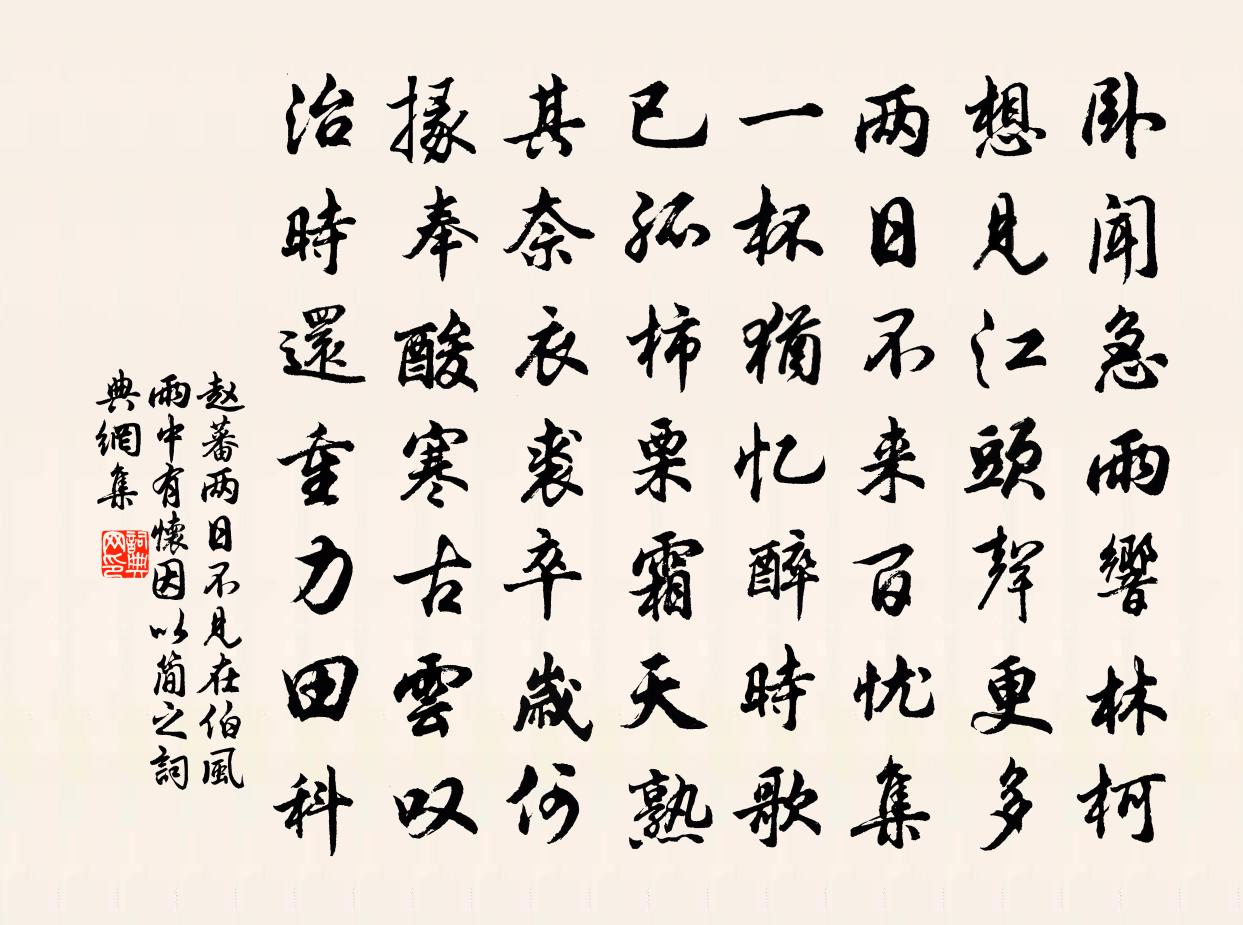 卧闻急雨響林柯
想見江頭聲更多
两日不来百忧集
一杯猶忆醉時歌
已孤柿栗霜天熟
其奈衣裘卒歲何
掾奉酸寒古雲叹
治時還重力田科
赵蕃两日不見在伯風
雨中有懷因以簡之詞
典網集
詞典网印